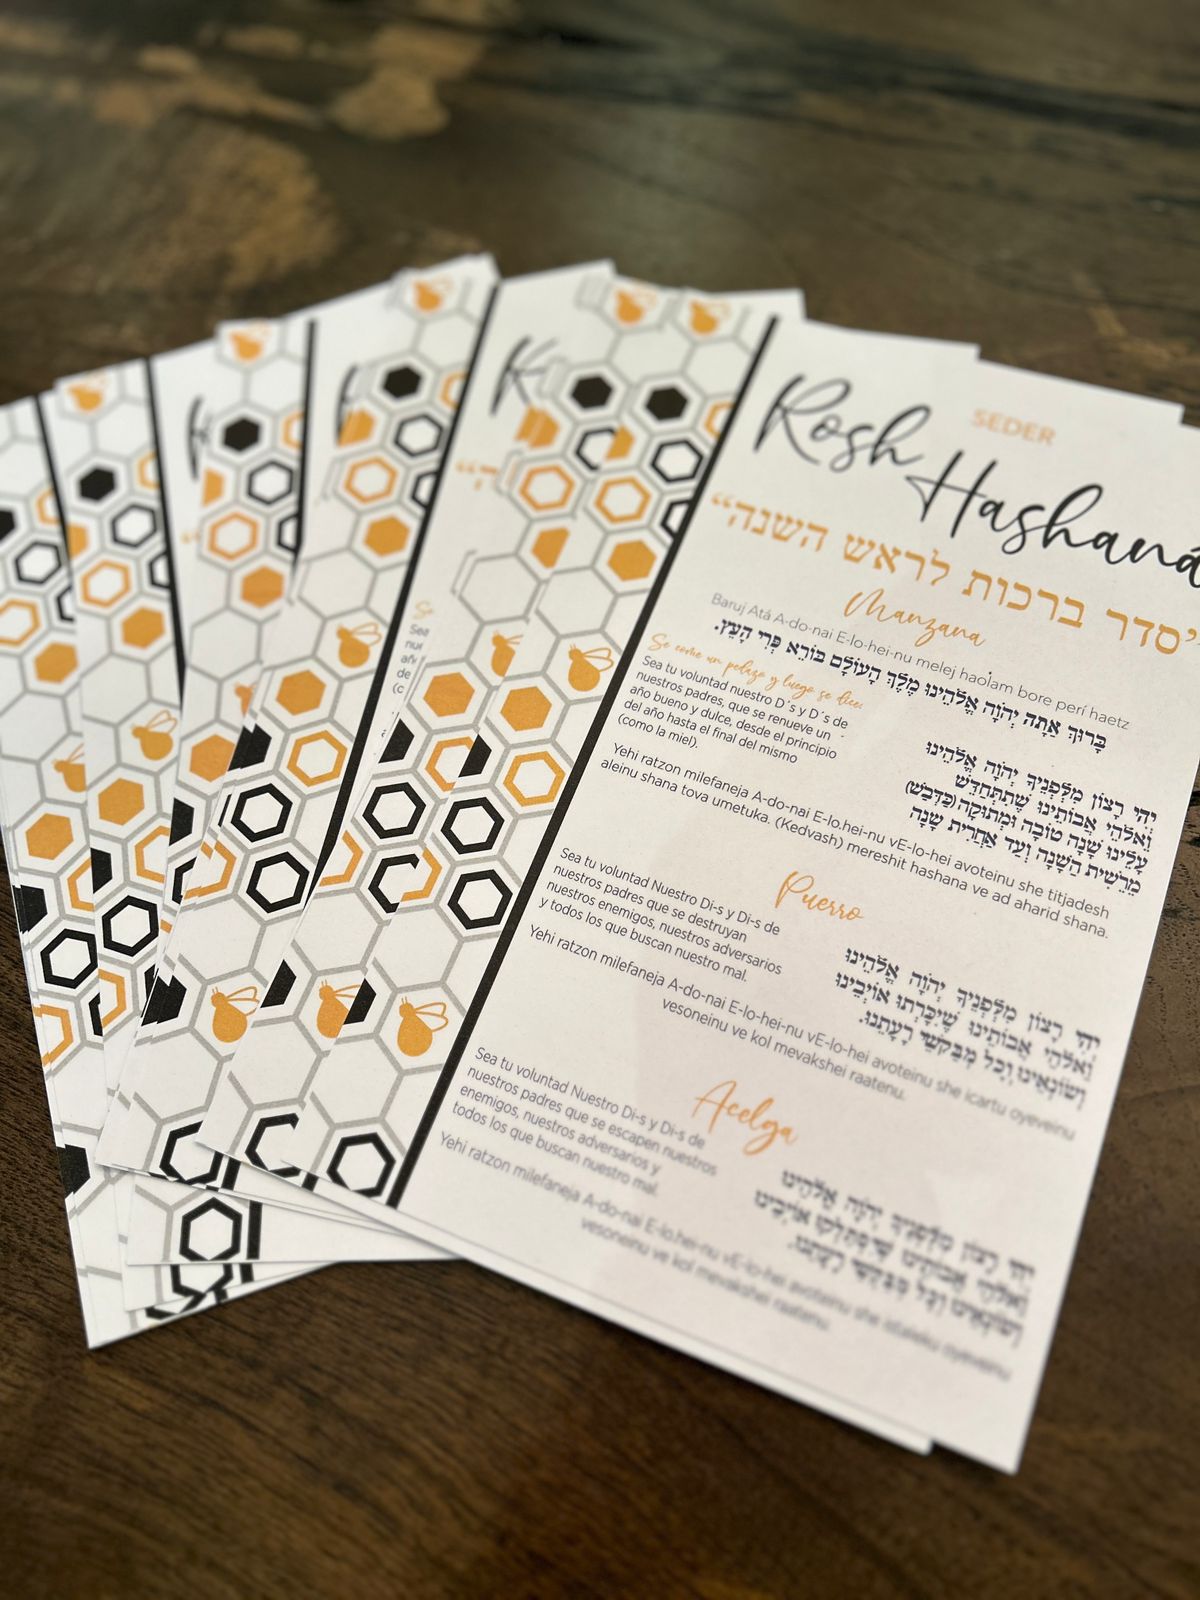 SEDER
Rosh Hashaná
"סדר ברכות לראש השנה"
Manzana
Baruj Atá A-do-nai E-lo-hei-nu melej haolam bore perí haetz
בָּרוּךְ אַתָּה יְהֹוָה אֱלֹהֵינוּ מֶלֶךְ הָעוֹלָם בּוֹרֵא פְּרִי הָעֵץ.
Se come un pedazo y luego se dice:
Sea tu voluntad nuestro D´s y D´s de
nuestros padres, que se renueve un
año bueno y dulce, desde el principio
del año hasta el final del mismo
(como la miel).
יְהִי רָצוֹן מִלְּפָנֶיךָ יְהֹוָה אֱלֹהֵינוּ
וֵאלֹהֵי אֲבוֹתֵינוּ שֶׁתְּחַדֵּשׁ
עָלֵינוּ שָׁנָה טוֹבָה וּמְתוּקָה (כַּדְּבַשׁ)
מֵרֵשִׁית הַשָּׁנָה וְעַד אַחֲרִית שָׁנָה
Yehi ratzon milefaneja A-do-nai E-lo.hei-nu vE-lo-hei avoteinu she titjadesh
aleinu shana tova umetuka. (Kedvash) mereshit hashana ve ad aharid shana.
Puerro
Sea tu voluntad Nuestro Di-s y Di-s de
nuestros padres que se destruyan
nuestros enemigos, nuestros adversarios
y todos los que buscan nuestro mal.
יְהִי רָצוֹן מִלְּפָנֶיךָ יְהֹוָה אֱלֹהֵינוּ
וֵאלֹהֵי אֲבוֹתֵינוּ שֶׁיִּכָּרְתוּ אוֹיְבֵינוּ
וְשׂוֹנְאֵינוּ וְכָל מְבַקְשֵׁי רָעָתֵנוּ.
Yehi ratzon milefaneja A-do-nai E-lo-hei-nu vE-lo-hei avoteinu she icartu oyeveinu
vesoneinu ve kol mevakshei raatenu.
Acelga
Sea tu voluntad Nuestro Di-s y Di-s de
nuestros padres que se escapen nuestros
enemigos, nuestros adversarios y
todos los que buscan nuestro mal.
יְהִי רָצוֹן מִלְּפָנֶיךָ יְהֹוָה אֱלֹהֵינוּ
וֵאלֹהֵי אֲבוֹתֵינוּ שֶׁיִּסְתַּלְּקוּ אוֹיְבֵינוּ
וְשׂוֹנְאֵינוּ וְכָל מְבַקְשֵׁי רָעָתֵנוּ.
Yehi ratzon milefaneja A-do-nai E-lo.hei-nu vE-lo-hei avoteinu she istaleku oyeveinu
vesoneinu ve kol mevakshei raatenu.